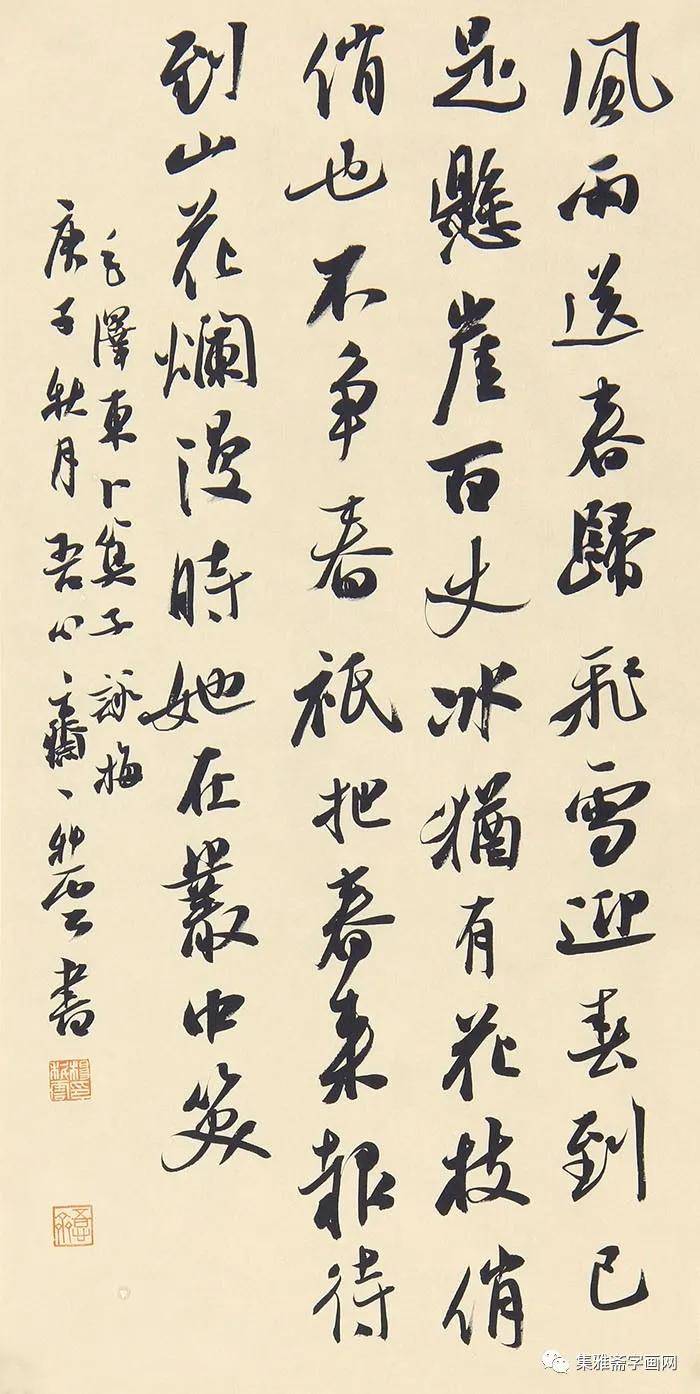 風雨送春歸飛雪迎春到已
是懸崖百丈冰猶有花枝俏
俏也不争春祇把春来報待
到山花爛漫時她在叢中笑
毛澤東卜算子詠梅
庚子秋月吾心齋書
集雅斋字画网